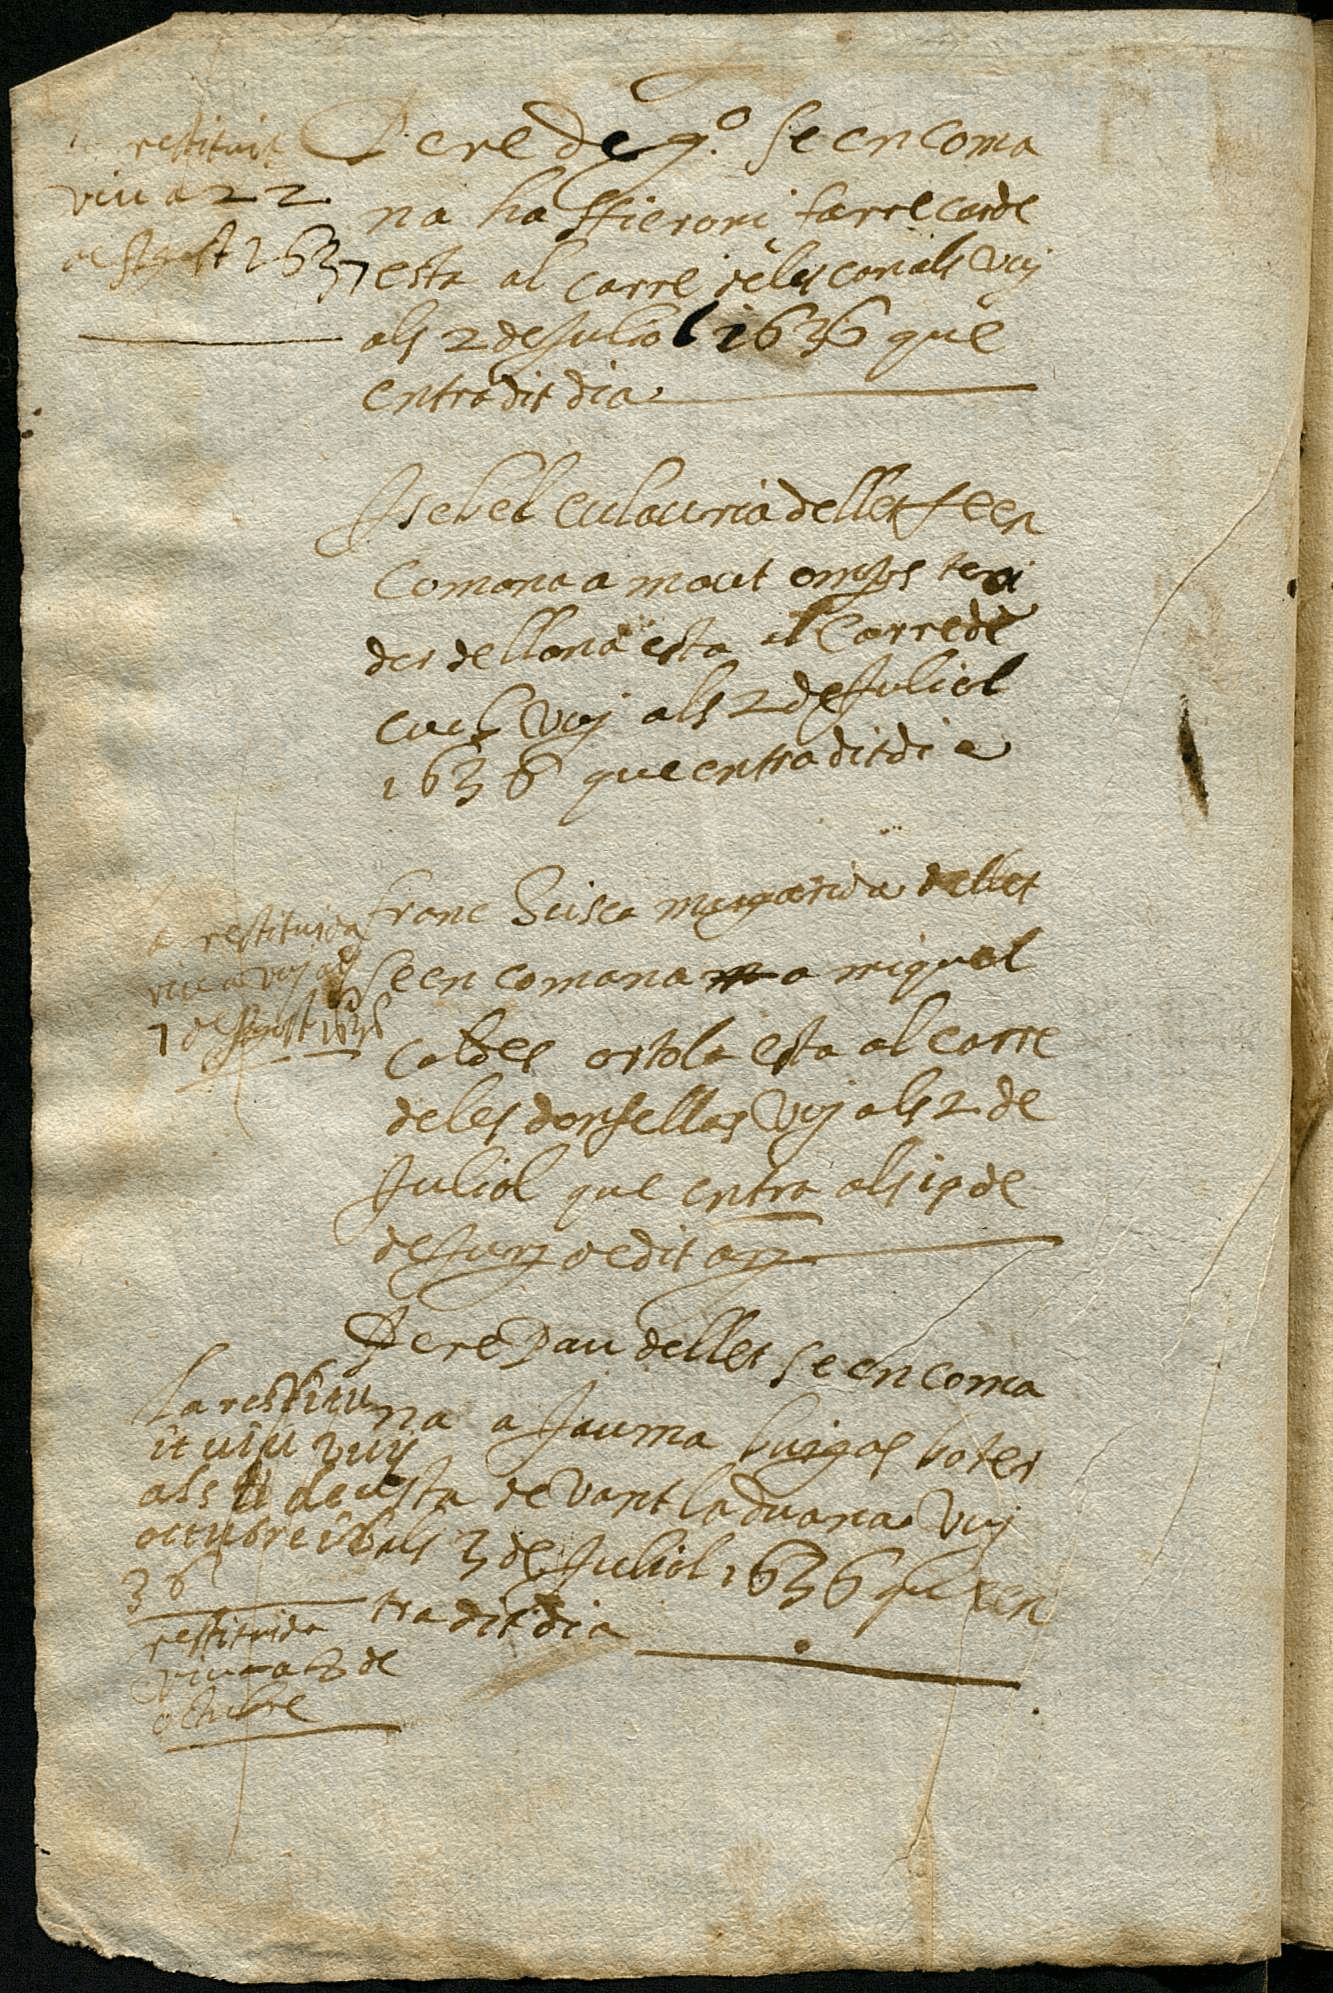 restituit
viu a 22
de Agost 1637
Pere de q.º se en coma
na ha Hieroni farre
esta al carre deles canals Vuj
als 2 de Juliol 1636 que
entra dit dia
Isebel Eulauria de llet se en
Comana a
der de llana esta al Carre de
Vuj als 2 de Juliol
1636 que entra dit dia
restituida
viu a Vuj als
7 de Agost 1636
francSisca margarida de llet
se en comana a miquel
caldes ortola esta al carre
deles donsellas Vuj als 2 de
Juliol que entra als 19 de
de Juny de dit any
Pere Pau de llet se en coma
na a Jauma buigas boter
esta de Vant la duana Vuj
als 3 de Juliol 1636 que en
tra dit dia
La restitu
it uiu vuij
als de
octubre 16
36
restituida
viu a 3 de
octubre